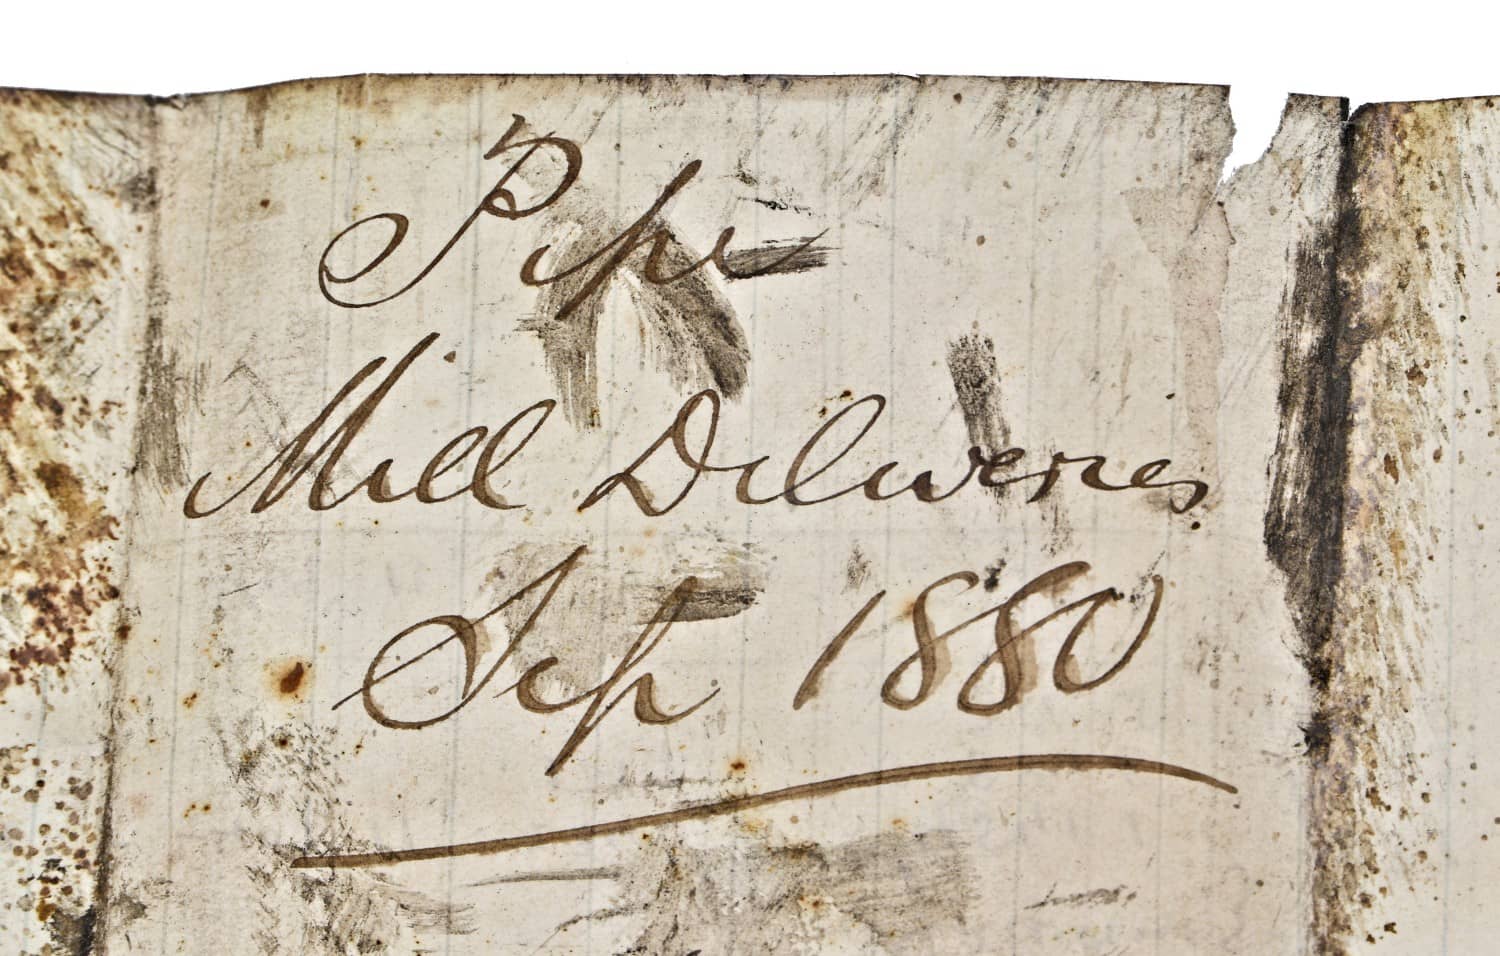 Pipe
Mill Deliveries
Sep 1880